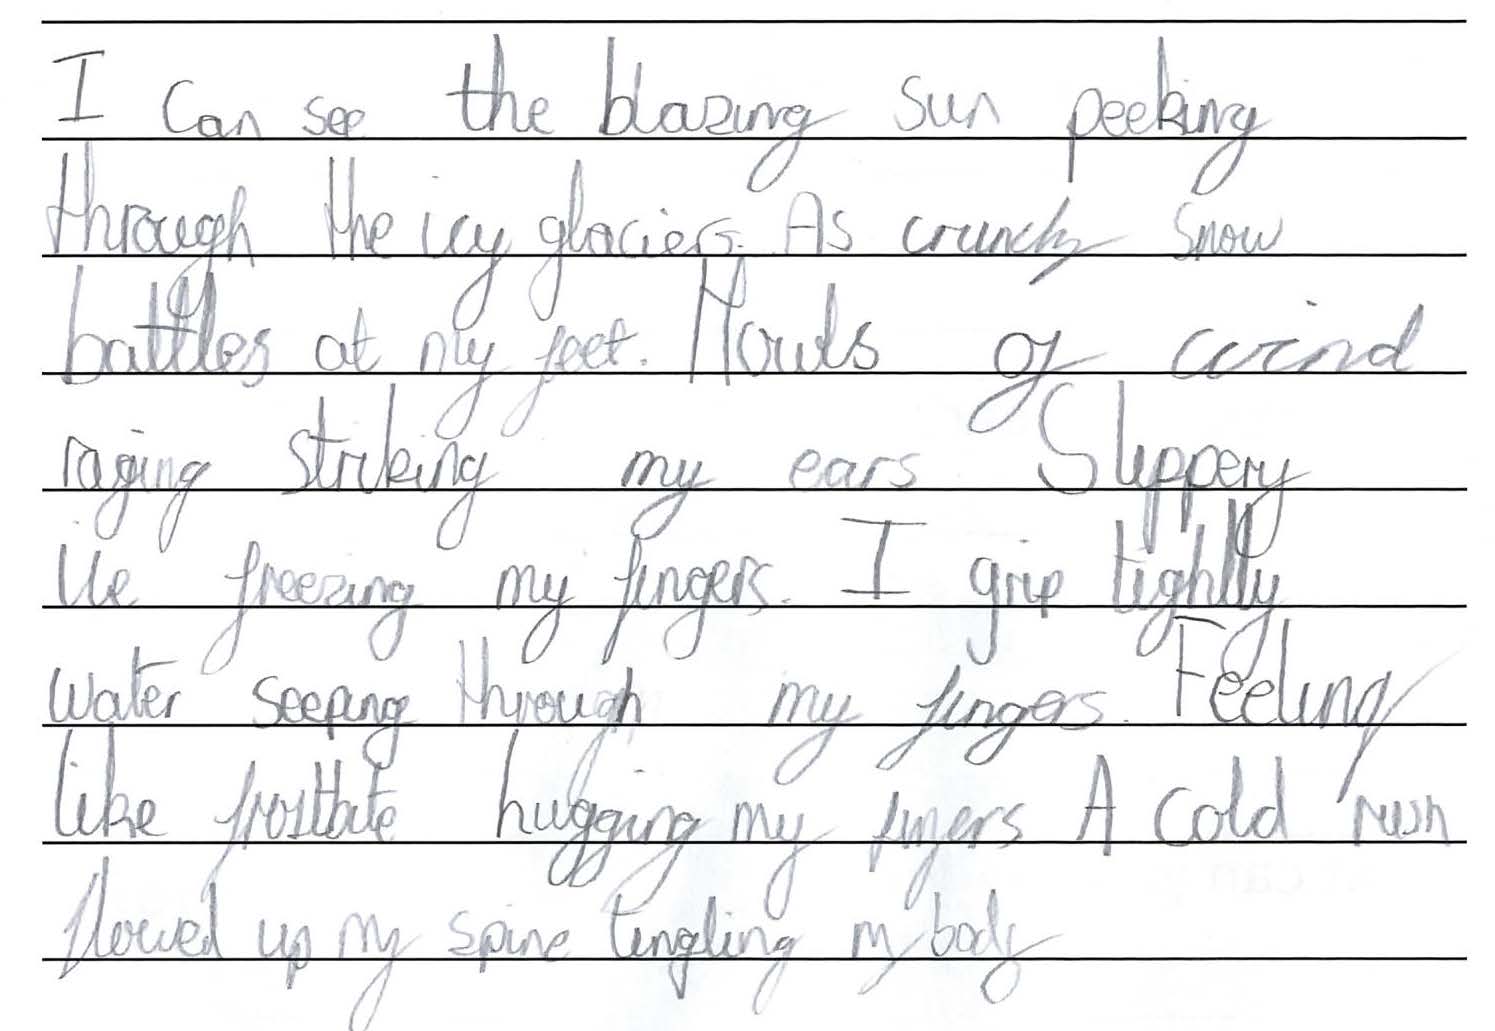 I can see the blazing sun peeking
through the icy glaciers. As crunchy snow
battles at my feet. Howls of wind
raging striking my ears Slippery
ice freezing my fingers. I grip tightly
water seeping through my fingers. Feeling
like frostbite hugging my fingers A cold rush
flowed up my spine tingling my body